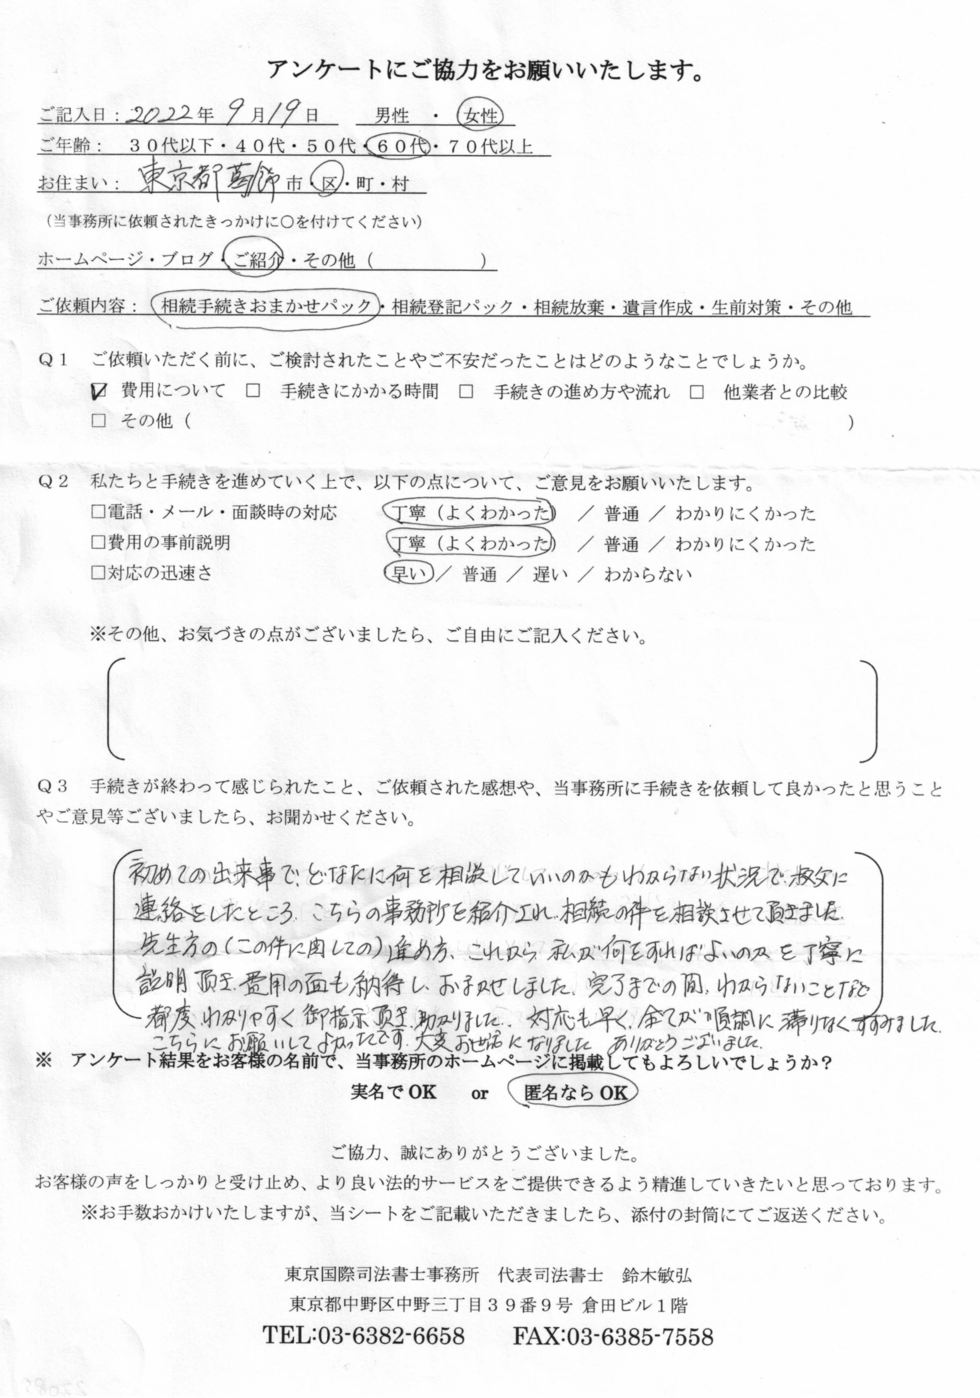 アンケートにご協力をお願いいたします。
ご記入日：2022年 9月19日　男性 ・ 女性
ご年齢：　３０代以下・４０代・５０代・６０代・７０代以上
お住まい：　東京都葛飾 市・区・町・村
（当事務所に依頼されたきっかけに〇を付けてください）
ホームページ・ブログ・ご紹介・その他（　　　　　　）
ご依頼内容：　相続手続きおまかせパック・相続登記パック・相続放棄・遺言作成・生前対策・その他
Ｑ１　ご依頼いただく前に、ご検討されたことやご不安だったことはどのようなことでしょうか。
☑ 費用について　□ 手続きにかかる時間　□ 手続きの進め方や流れ　□ 他業者との比較
□ その他（　　　　　　）
Ｑ２　私たちと手続きを進めていく上で、以下の点について、ご意見をお願いいたします。
□電話・メール・面談時の対応　丁寧（よくわかった）　／ 普通 ／ わかりにくかった
□費用の事前説明　丁寧（よくわかった）　／ 普通 ／ わかりにくかった
□対応の迅速さ　早い ／ 普通 ／ 遅い ／ わからない
※その他、お気づきの点がございましたら、ご自由にご記入ください。
Ｑ３　手続きが終わって感じられたこと、ご依頼された感想や、当事務所に手続きを依頼して良かったと思うこと
やご意見等ございましたら、お聞かせください。
初めての出来事で、どなたに何を相談していいのかもわからない状況で、叔父に
連絡をしたところ、こちらの事務所を紹介され、相続の件を相談させて頂きました。
先生方の(この件に関しての)進め方、これから私が何をすればよいのかを丁寧に
説明頂き、費用の面も納得し、おまかせしました。完了までの間、わからないことなど
都度わかりやすく御指示頂き、助かりました。対応も早く、全てが順調に滞りなくすすみました。
こちらにお願いしてよかったです。大変お世話になりました ありがとうございました。
※　アンケート結果をお客様の名前で、当事務所のホームページに掲載してもよろしいでしょうか？
実名でOK　or　匿名ならOK
ご協力、誠にありがとうございました。
お客様の声をしっかりと受け止め、より良い法的サービスをご提供できるよう精進していきたいと思っております。
※お手数おかけいたしますが、当シートをご記載いただきましたら、添付の封筒にてご返送ください。
東京国際司法書士事務所　代表司法書士　鈴木敏弘
東京都中野区中野三丁目３９番９号 倉田ビル１階
TEL:03-6382-6658　FAX:03-6385-7558